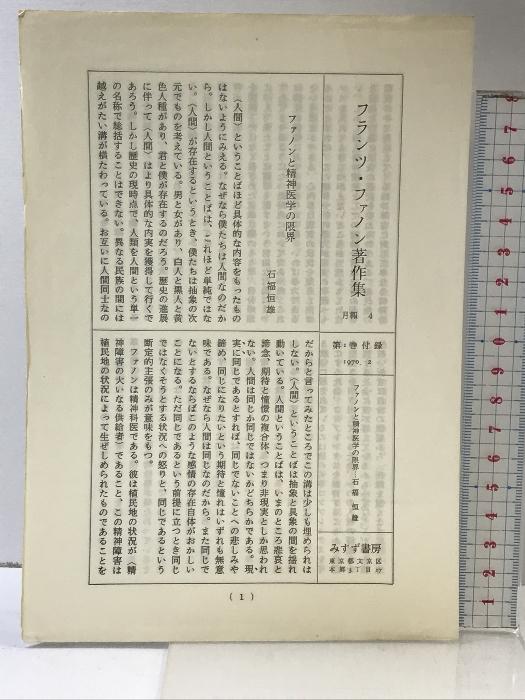 フランツ・ファノン著作集
月報 4
第1巻付録
1970. 2
ファノンと精神医学の限界…石福恒雄
みすず書房
ファノンと精神医学の限界
石福恒雄
〈人間〉ということばほど具体的な内容をもったもの
はないようにみえる。なぜなら僕たちは人間なのだか
ら。しかし人間ということばは、これほど単純ではな
い。〈人間〉が存在するというとき、僕たちは抽象の次
元でものを考えている。男と女があり、白人と黒人と黄
色人種があり、君と僕が存在するのだろう。歴史の進展
に伴って〈人間〉はより具体的な内実を獲得して行くで
あろう。しかし歴史の現時点で、人類を人間という単一
の名称で総括することはできない。異なる民族の間には
越えがたい溝が横たわっている。お互いに人間同士なの
だからと言ってみたところでこの溝は少しも埋められは
しない。〈人間〉ということばは抽象と具象の間を揺れ
動いている。人間ということばは、いまのところ悲哀と
諦念、期待と憧憬の複合体、つまり非現実としか思われ
ない。人間は同じか同じではないかどちらかである。現
実に同じであるとすれば、同じでないことへの悲しみや
諦め、同じになりたいという期待と憧れはいずれも無意
味である。なぜなら人間は同じなのだから。また同じで
ないとするならばこのような感情の存在自体がおかしい
ことになる。ただ同じであるという前提に立つとき同じ
ではなくそうとする状況への怒りと、同じであるという
断定的主張のみが意味をもつ。
ファノンは精神科医である。彼は植民地の状況が〈精
神障害の大いなる供給者〉であること、この精神障害は
植民地の状況によって生ぜしめられたものであることを
( 1 )
1 2 3 4 5 6 7 8 9